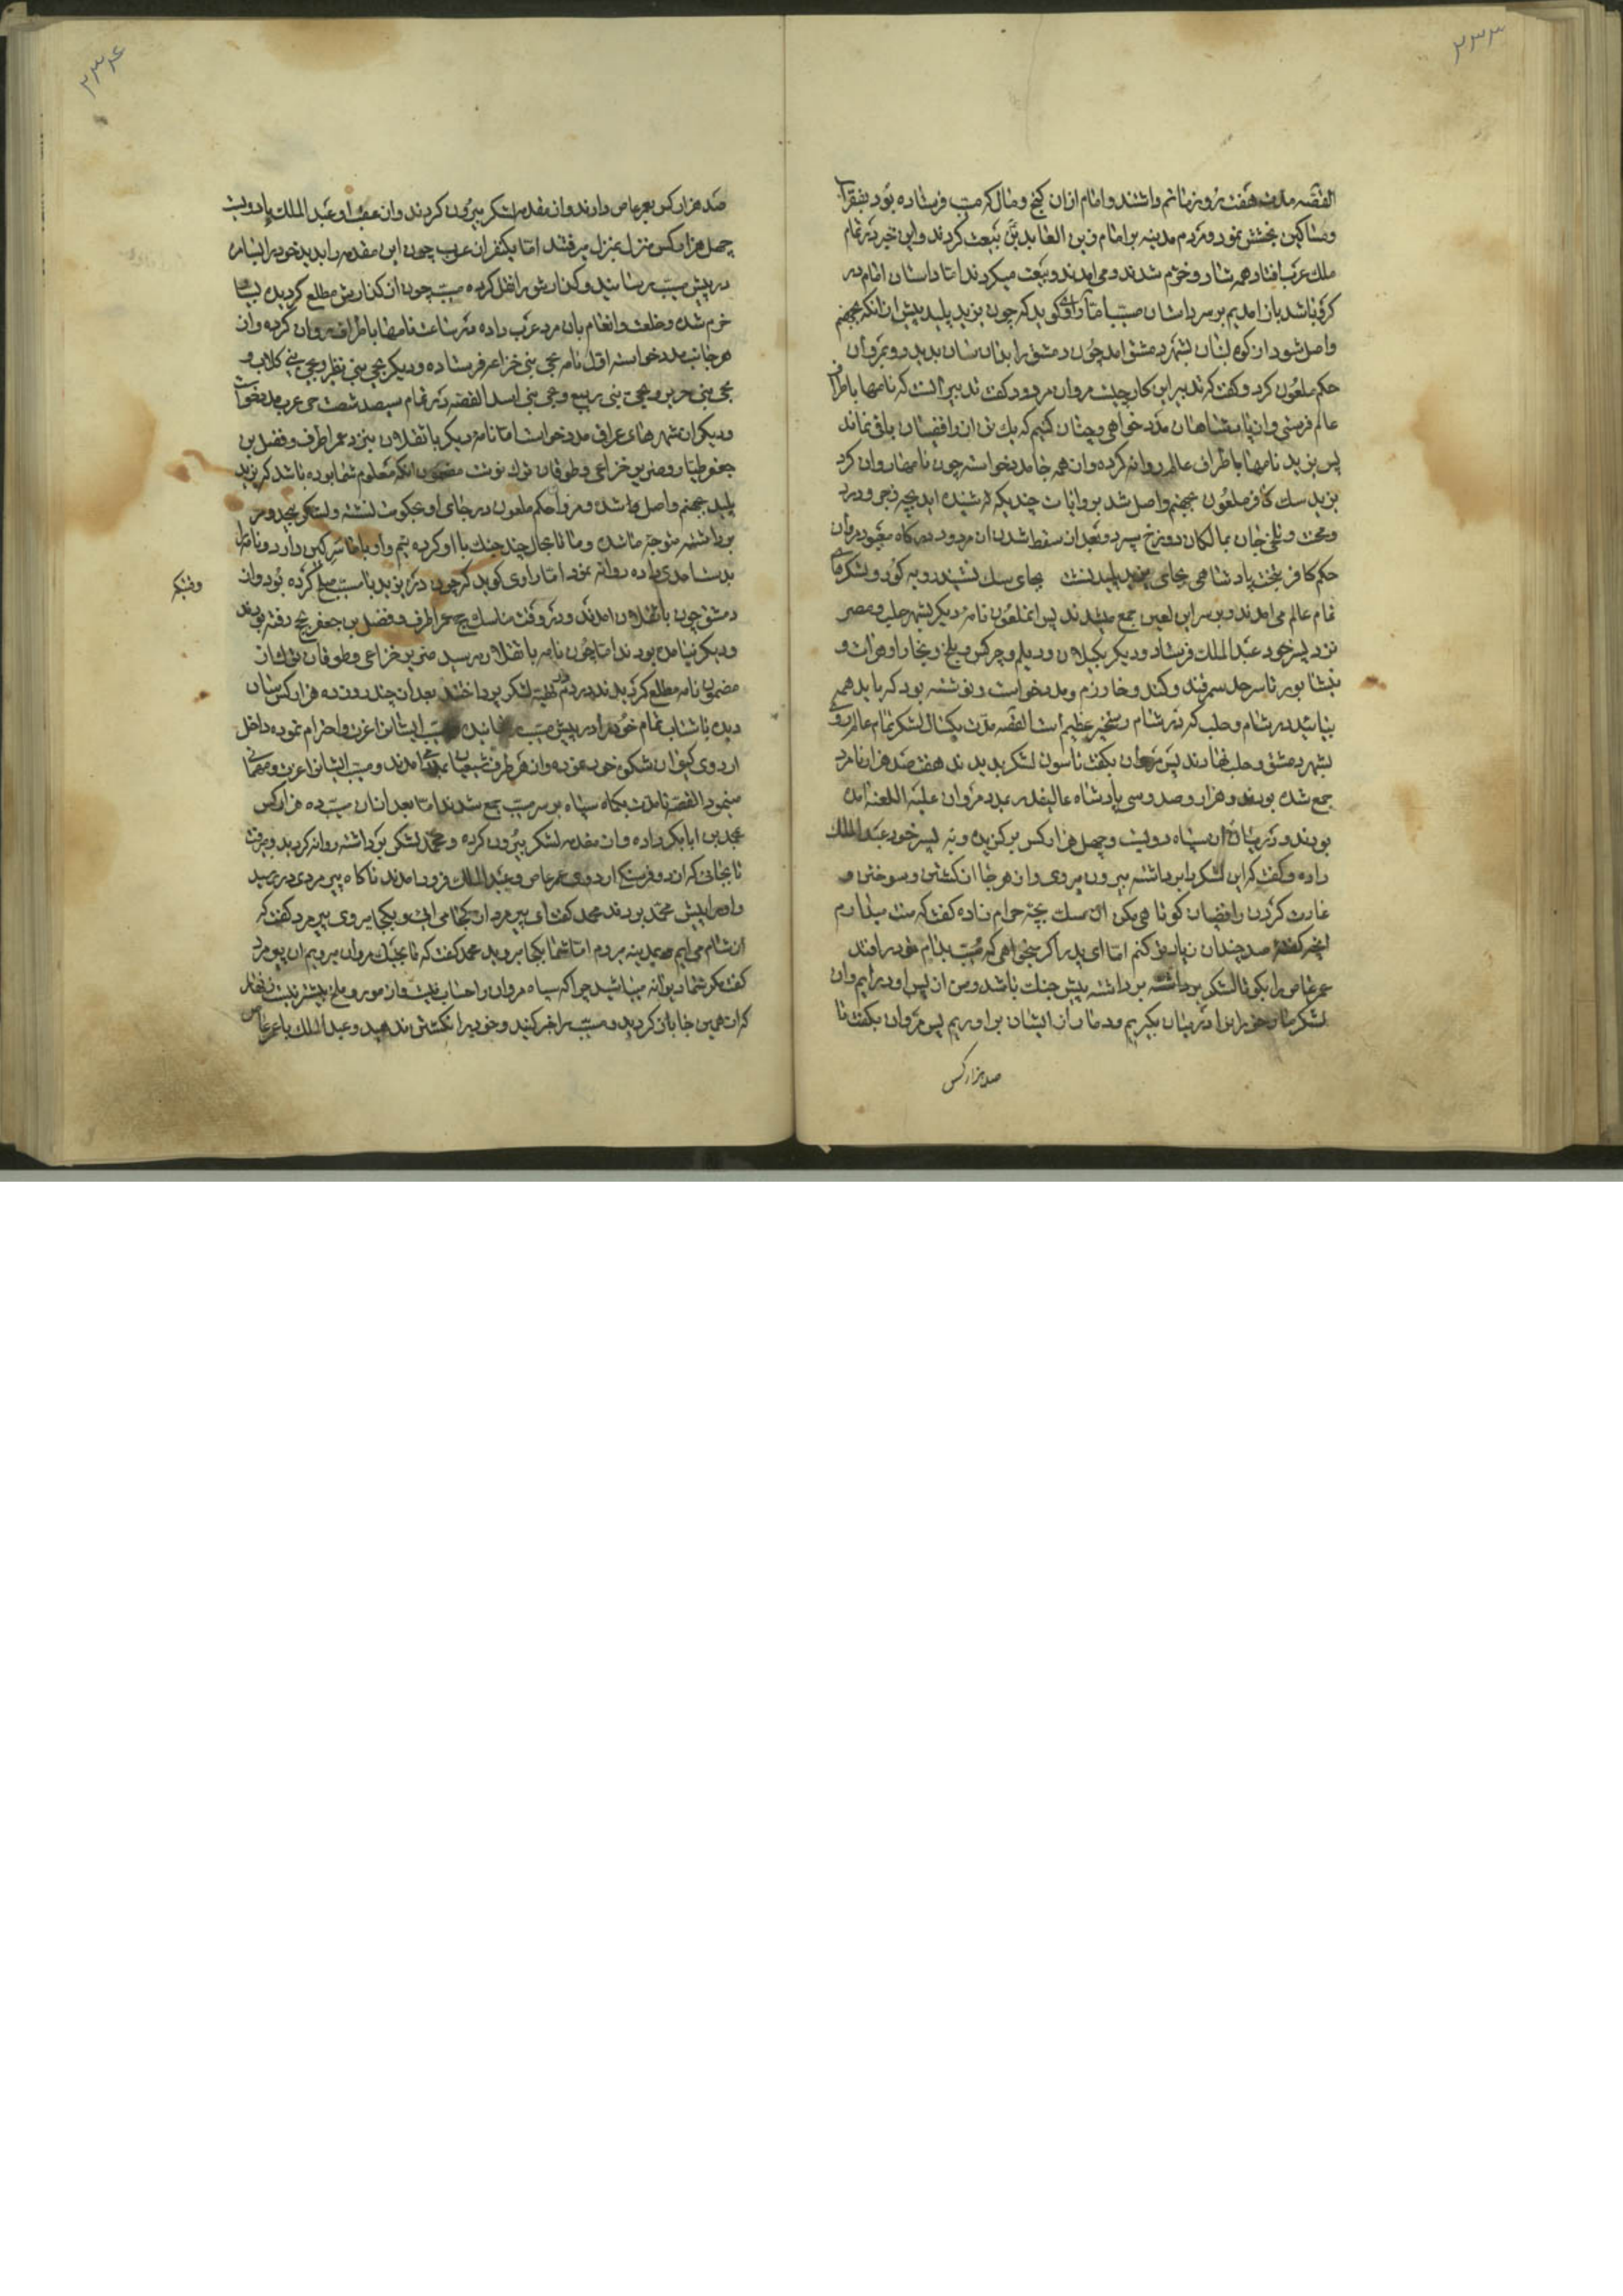 ۲۳۳
القصه مدت هفت روز ماتم داشتند و امام از ان کنج و مال که مسیب فرستاده بود بفقرا
و مساکین بخشش نمود و مردم مدینه بر امام زین العابدین بیعت کردند و این خبر در تمام
ملک عرب افتاد همه شاد و خرم شدند و می امدند و بیعت میکردند اما داستان امام در
کرو باشد باز امدیم بر سر داستان مسیب اما راوی کوید که چون یزید پلید پیش از انکه بجهنم
واصل شود از کوه لبنان بشهر دمشق امد چون دمشق را بدان سان بدید رو بمروان
حکم ملعون کرد و کفت که تدبیر این کار چیست مروان مردود کفت تدبیر انست که نامها باطراف
عالم فرستی و از پادشاهان مدد خواهی و چنان کنیم که یک تن از رافضیان باقی نماند
پس یزید نامها باطراف عالم روانه کرده و از همه جا مدد خواسته چون نامها روان کرد
یزید سک کافر ملعون بجهنم واصل شد بروایات چندیکه شنیده اید بچه زجر و درد
و محنت و تلخی جان بمالکان دوزخ سپرد و بعد از سقط شدن ان مردود درکاه معبود مروان
حکم کافر بر تخت پادشاهی بجای یزید پلید نشست بجای سک نشیند روبه کور و لشکرهای
تمام عالم می امدند و بر سر این لعین جمع میشدند پس انملعون نامهٔ دیکر بشهر حلب و مصر
نزد پسر خود عبد الملک فرستاد و دیکر بکیلان و دیلم و چرکس و بلخ و بخارا و هرات و
نیشابور تا سرحد سمرقند و کند و خارزم و مدد خواست و نوشته بود که باید همه
بیائید در شام و حلب که در شام رستخیز عظیم است القصه مدت یکسال لشکر تمام عالم روی
بشهر دمشق و حلب نهادند پس مروان بکفت تا سون لشکر بدیدند هفتصد هزار نامرد
جمع شده بودند و هزار و صد و سی پادشاه عالیقدر بمدد مروان علیه اللعنه امده
بودند و در میان ان سپاه دویست و چهل هزار کس برکزیده و به پسر خود عبد الملک
داده و کفت که این لشکر را برداشته بیرون میروی و از هرجا از کشتن و سوختن و
غارت کردن رافضیان کوتاهی مکن ان سک بچه حرام زاده کفت که منت میدارم
انچه کفته صد چندان زیاده کنم اما ای پدر اکر میخواهی که مسیب بدام خود را افتد
عمر عاص را بکو تا لشکر برداشته برداشته پیش جنک باشد و من از پس او درایم و ان
لشکر ما و خود را در میان بکیریم و دمار از ایشان براوریم پس مروان بکفت تا
صد هزار کس
۲۳۴
صد هزار کس بعمر عاص دادند و از مقدمه لشکر بیرون کردند و از عقب او عبد الملک با دویست
چهل هزار کس منزل بمنزل میرفتند اما یکنفر از عرب چون این مقدمه را بدید خود را بشام
در پیش مسیب رسانید و کذارش را نقل کرده مسیب چون از کذارش مطلع کردیده بسیار
خرم شده و خلعت و انعام بان مرد عرب داده در ساعت نامها باطراف روان کرده و از
هر جانب مدد خواسته اول نامه بحی بنی خزاعه فرستاده و دیکر بحی بنی نظر و بحی بنی کلاب و
بحی بنی حریر و بحی بنی ربیع و بحی بنی اسد القصه در تمام سیصد شصت حی عرب مدد خواست
و دیکر از شهرهای عراق مدد خواست اما نامهٔ دیکر باتقلان بنزد عمر اطرف و فضل بن
جعفر طیار و منیر بن خزاعی و طوقان ترک نوشت مضمون انکه معلوم شما بوده باشد که یزید
پلید بجهنم واصل شده و مروان حکم ملعون در جای او بحکومت نشسته و لشکر بیحد و مر
برداشته متوجه ما شده و ما تا بحال چند جنک با او کرده ایم و او با ما سر کین دارد و نامه را
بدست مردی داده روانه نمود اما راوی کوید که چون در یزید با مسیب صلح کرده بود و از
دمشق چون باتقلان امدند و در وقت مناسک حج عمر اطرف و فضل بن جعفر بحج رفته بودند
و دیکر نیامده بودند اما چون نامه باتقلان رسید منیر بن خزاعی و طوقان ترک از
مضمون نامه مطلع کردیدند در دم بتهیه لشکر پرداختند بعد از چند روز ده هزار کس سان
دیده با شتاب تمام خود را در پیش مسیب رسانیدند مسیب ایشانرا عزت و احترام نموده داخل
اردوی کیوان شکوه خود نموده و از هر طرف شیعیان بمدد امدند و مسیب ایشانرا عزت و مهمانی
مینمود القصه تا مدت یکماه سپاه بر سر مسیب جمع شدند اما بعد از ان مسیب ده هزار کس
بمحمد بن ابابکر داده و از مقدمه لشکر بیرون کرده و محمد لشکر برداشته روانه کردید و میرفت
تا بجائی که از دو فرسنک اردوی عمر عاص و عبد الملک فرود امدند ناکاه پیر مردی در رسید
و او را پیش محمد بردند محمد کفت ای پیر مرد از کجا می ائی و بکجا میروی پیر مرد کفت که
از شام می ایم بمدینه میروم اما شما بکجا میروید محمد کفت که تا بجنک مروان میرویم ان پیر مرد
کفت مکر شما دیوانه میباشید چرا که سپاه مروان را حساب نیست و از مور و ملخ بیشتر است زنهار
که از همین جا باز کردید و مسیب را خبر کنید و خود را بکشتن ندهید و عبد الملک با عمر عاص
وقتیکه